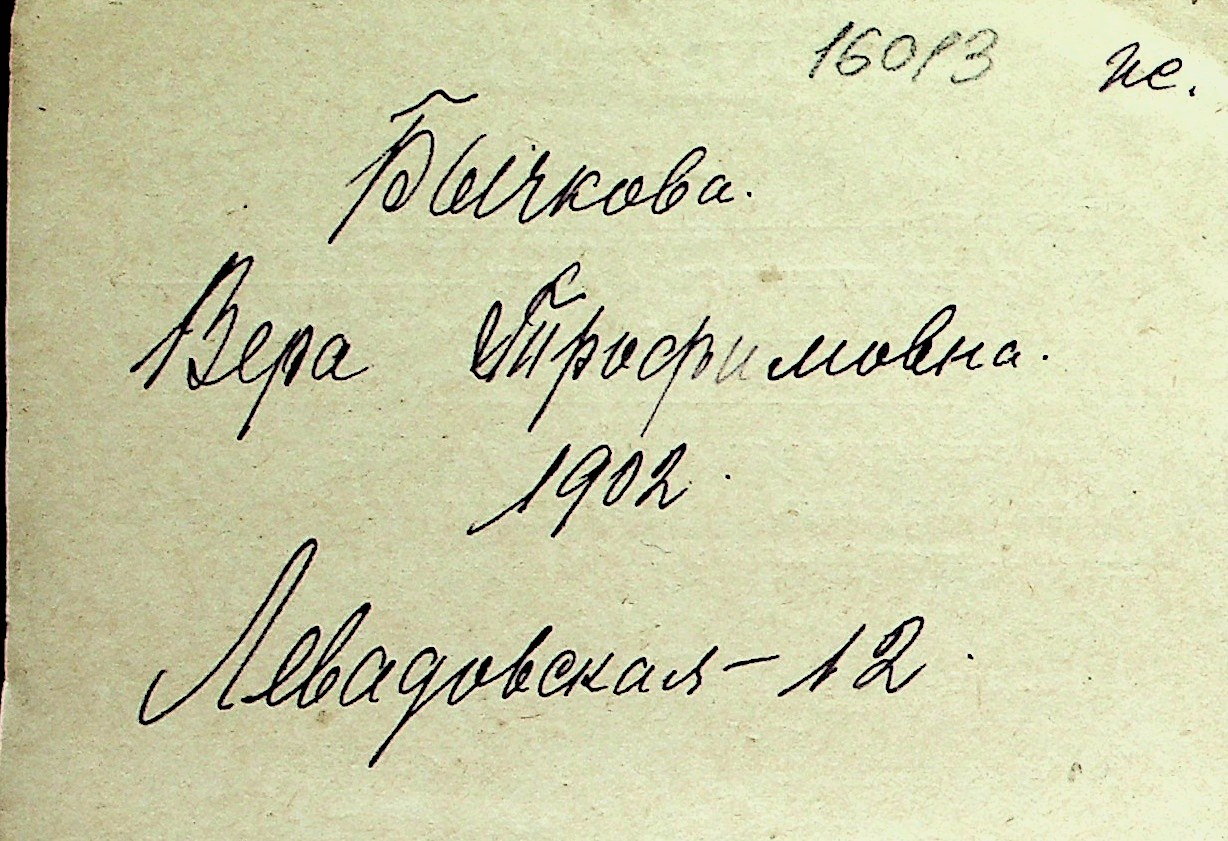 16013 ж.
Бычкова.
Вера Трофимовна.
1902.
Левадовская - 12.